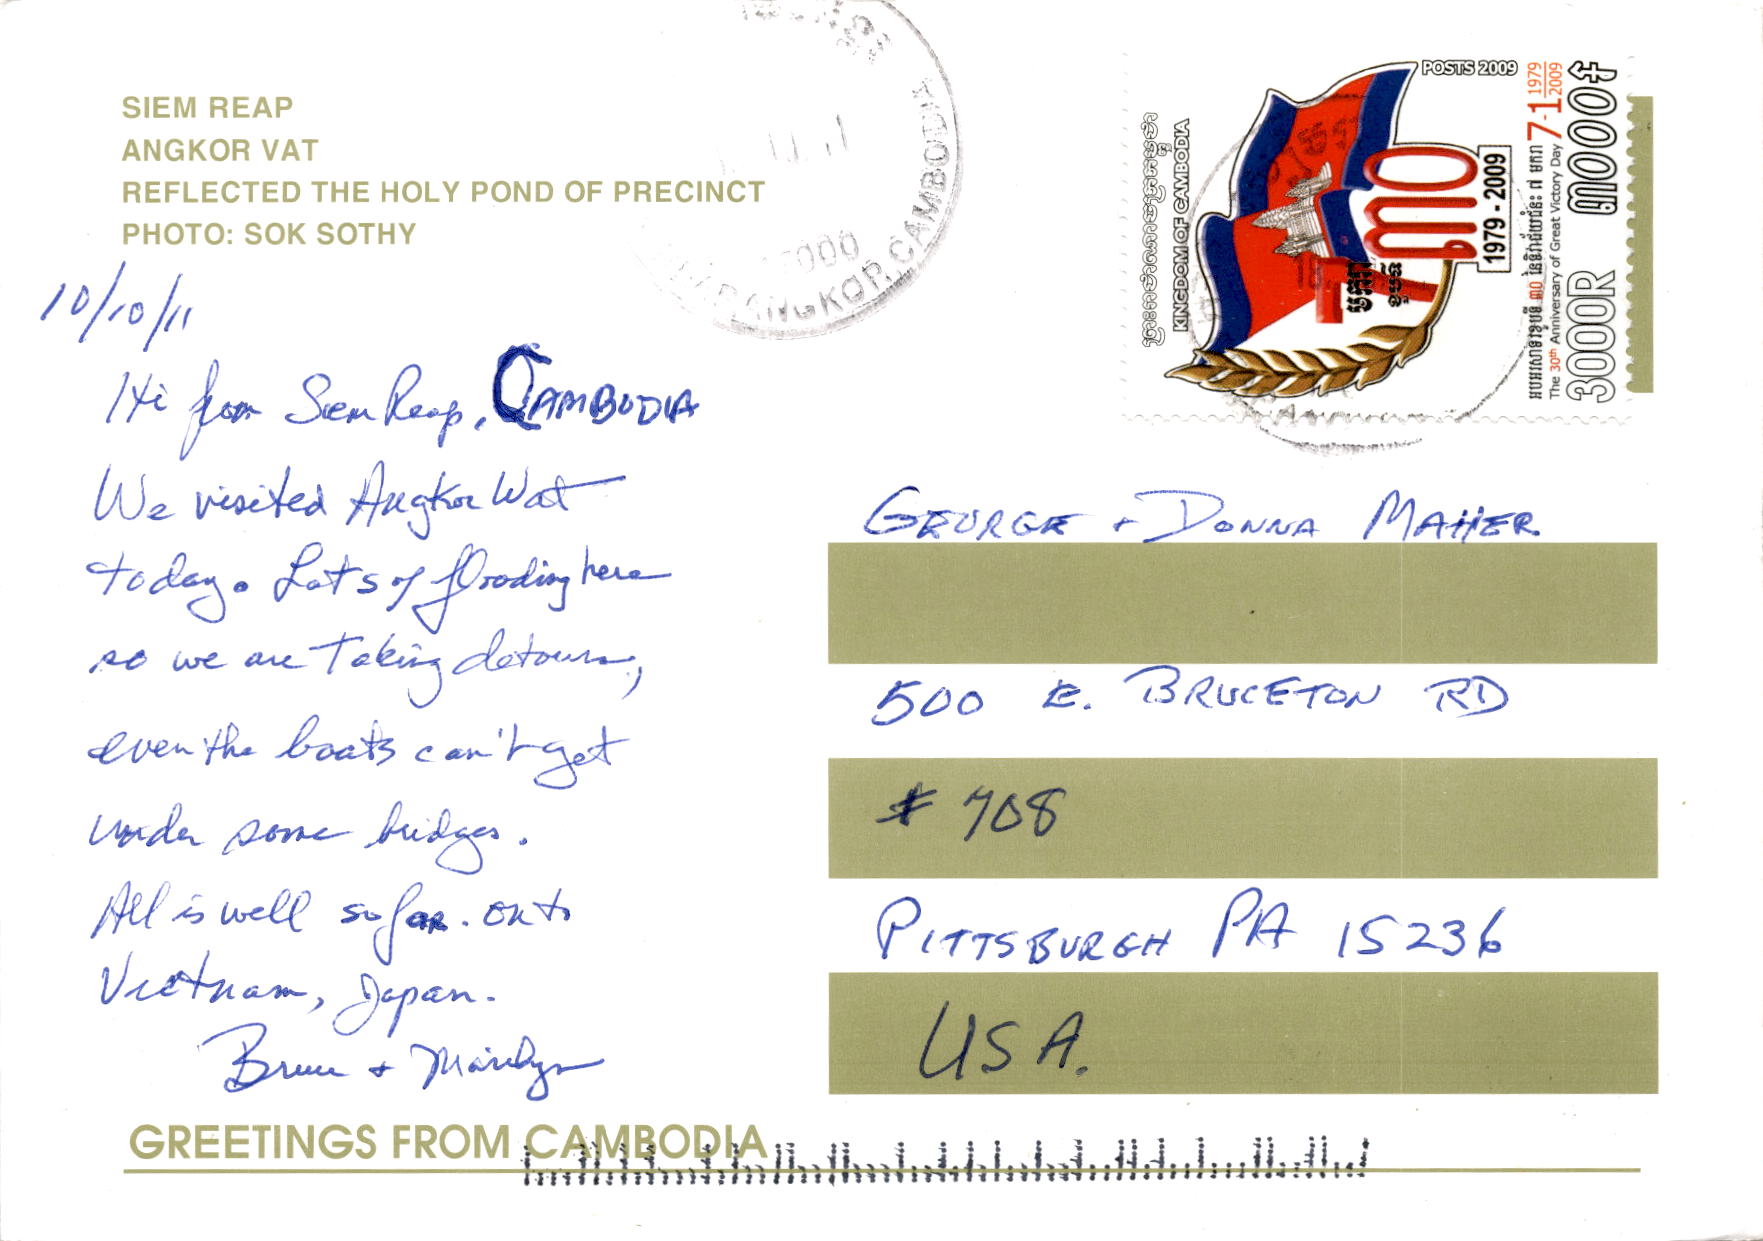 SIEM REAP
ANGKOR VAT
REFLECTED THE HOLY POND OF PRECINCT
PHOTO: SOK SOTHY
10/10/11
Hi from Siem Reap, CAMBODIA
We visited Angkor Wat
today. Lots of flooding here
so we are taking detours,
even the boats can't get
under some bridges.
All is well so far. on to
Vietnam, Japan.
Bruce + Marilyn
GREETINGS FROM CAMBODIA
ANGKOR, CAMBODIA
KINGDOM OF CAMBODIA
POSTS 2009
៣០
1979 - 2009
The 30th Anniversary of Great Victory Day 7-1 1979 2009
3000R ៣០០០៛
GEORGE + DONNA MAHER
500 E. BRUCETON RD
# 708
PITTSBURGH PA 15236
USA.